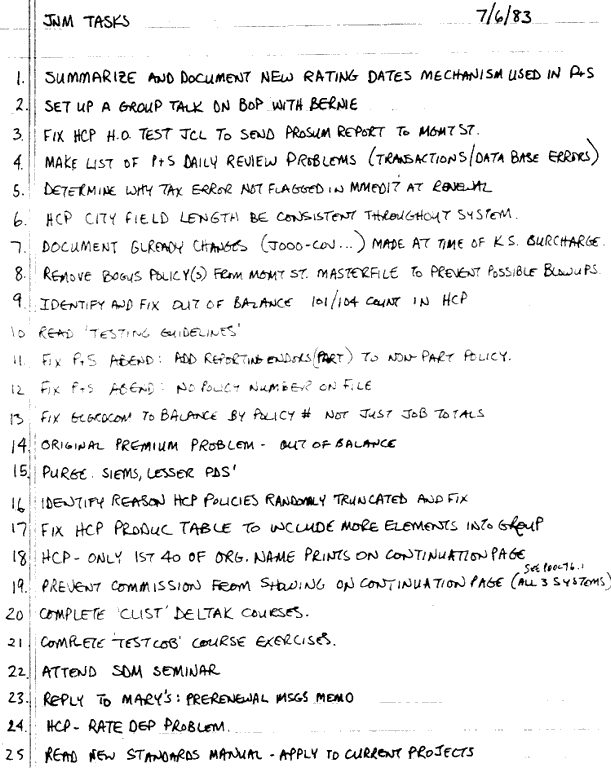 JNM TASKS 7/6/83
1. SUMMARIZE AND DOCUMENT NEW RATING DATES MECHANISM USED IN P+S
2. SET UP A GROUP TALK ON BOP WITH BERNIE
3. FIX HCP H.O. TEST JCL TO SEND PROSUM REPORT TO MGMT ST.
4. MAKE LIST OF P+S DAILY REVIEW PROBLEMS (TRANSACTIONS/DATA BASE ERRORS)
5. DETERMINE WHY TAX ERROR NOT FLAGGED IN MMEDIT AT RENEWAL
6. HCP CITY FIELD LENGTH BE CONSISTENT THROUGHOUT SYSTEM.
7. DOCUMENT GLREADY CHANGES (J000-COV...) MADE AT TIME OF K.S. BURCHARGE.
8. REMOVE BOGUS POLICY(S) FROM MGMT ST. MASTERFILE TO PREVENT POSSIBLE BLOWUPS.
9. IDENTIFY AND FIX OUT OF BALANCE 101/104 COUNT IN HCP
10 READ 'TESTING GUIDELINES'
11. FIX P+S ABEND: ADD REPORTING ENDORS(PART) TO NON-PART POLICY.
12 FIX P+S ABEND: NO POLICY NUMBER ON FILE
13 FIX TO BALANCE BY POLICY # NOT JUST JOB TOTALS
14. ORIGINAL PREMIUM PROBLEM - OUT OF BALANCE
15. PURGE. SIEMS, LESSER PDS'
16 IDENTIFY REASON HCP POLICIES RANDOMLY TRUNCATED AND FIX
17 FIX HCP PRODUC TABLE TO INCLUDE MORE ELEMENTS INTO GROUP
18 HCP - ONLY 1ST 40 OF ORG. NAME PRINTS ON CONTINUATION PAGE
19. PREVENT COMMISSION FROM SHOWING ON CONTINUATION PAGE (ALL 3 SYSTEMS)
20 COMPLETE 'CLIST' DELTAK COURSES.
21 COMPLETE 'TESTCOB' COURSE EXERCISES.
22. ATTEND SDM SEMINAR
23. REPLY TO MARY'S: PRERENEWAL MSGS MEMO
24. HCP - RATE DEP PROBLEM.
25 READ NEW STANDARDS MANUAL - APPLY TO CURRENT PROJECTS